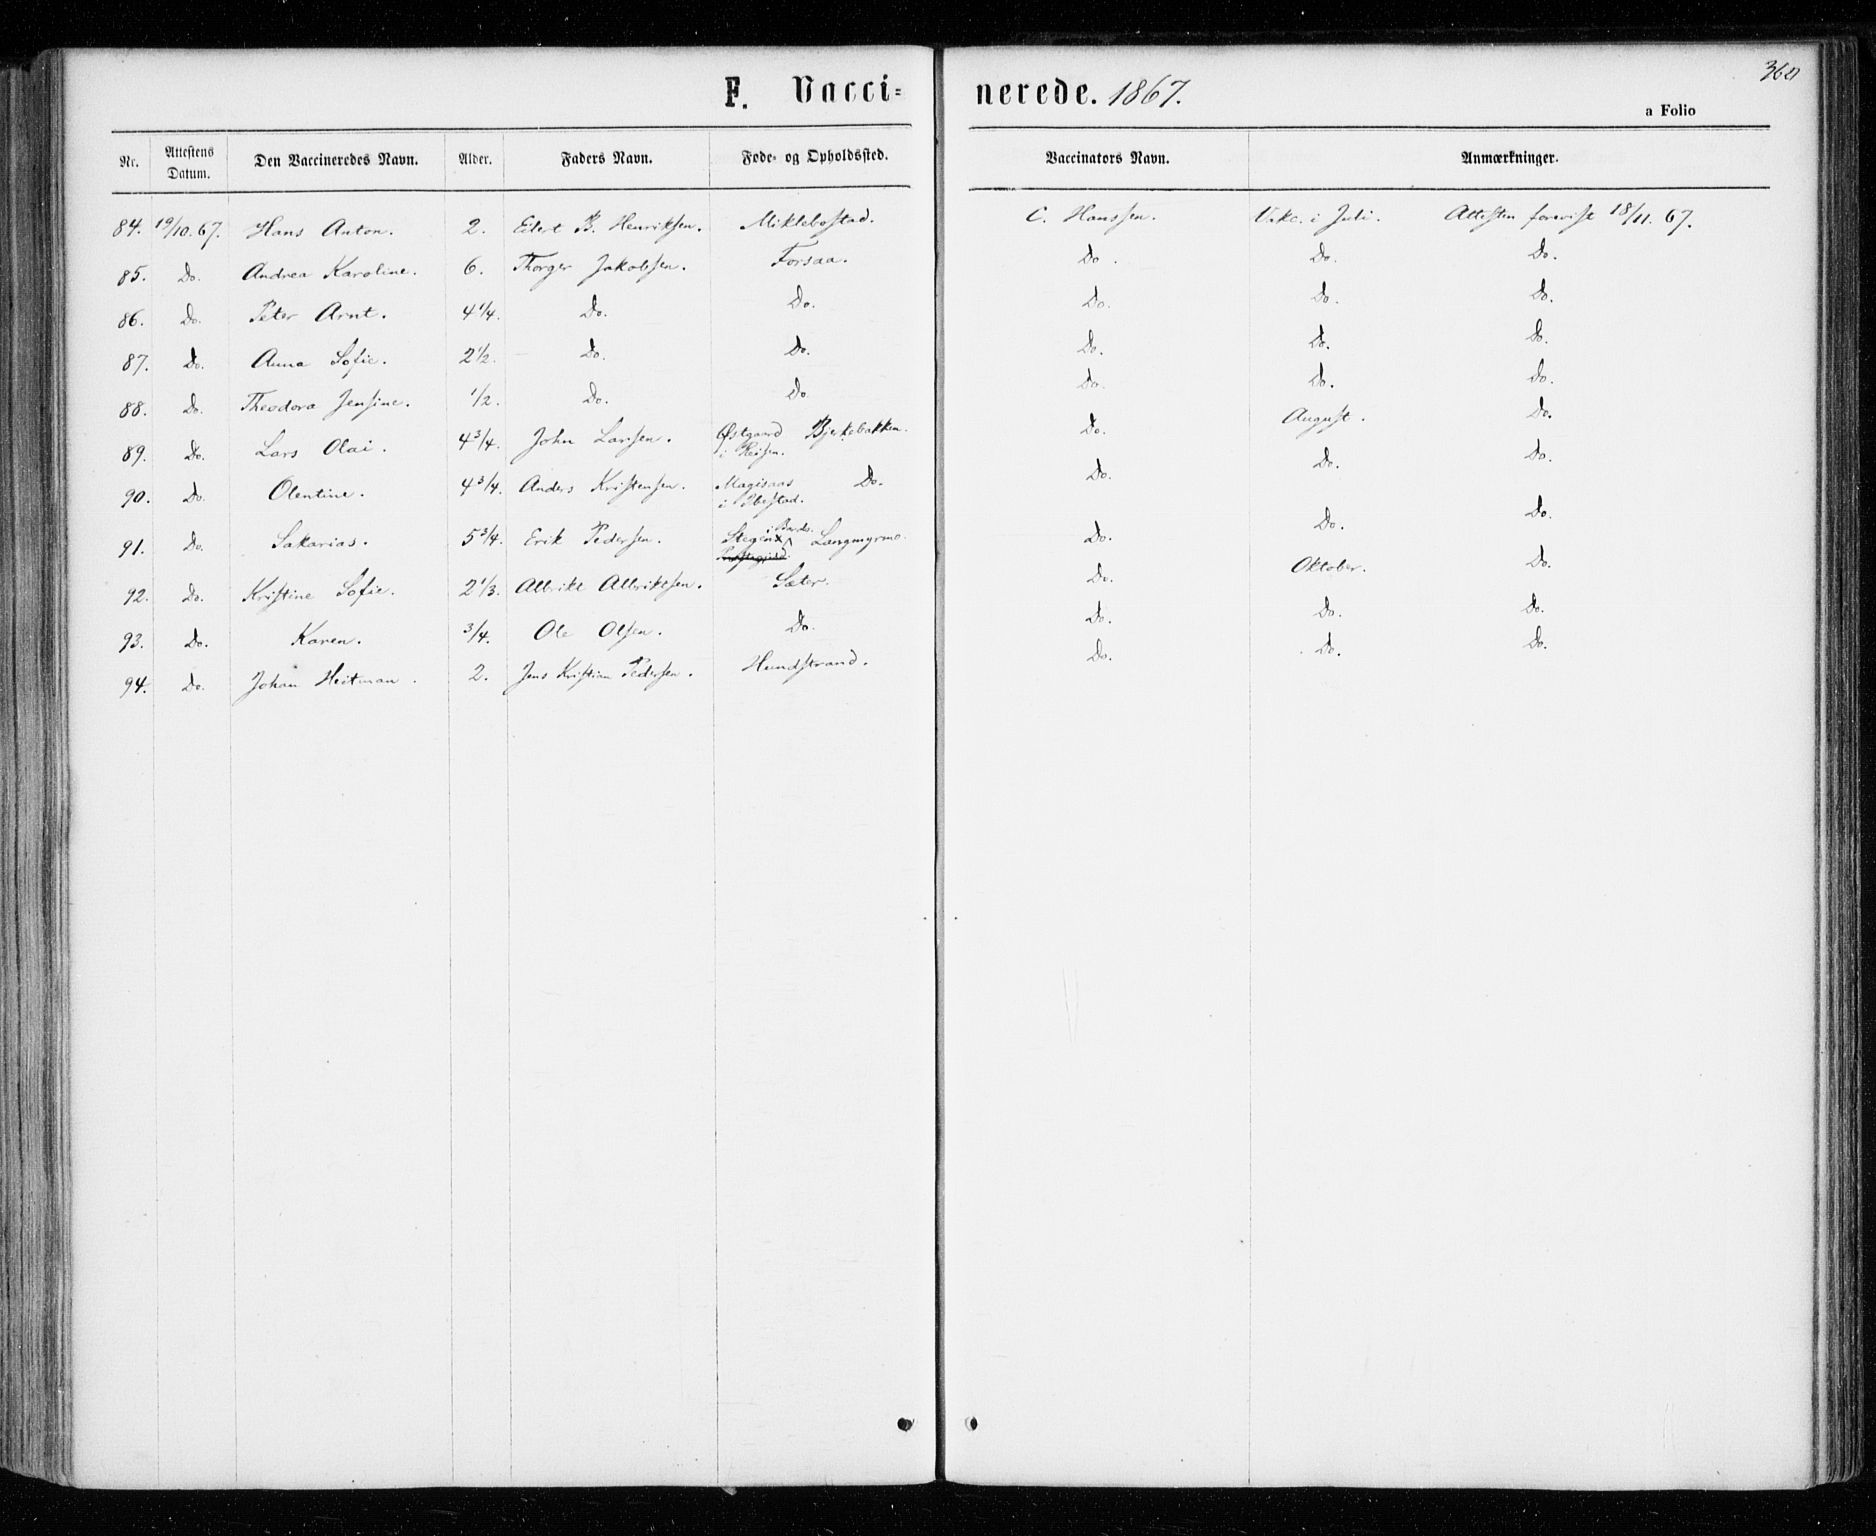 F. Vaccinerede. 1867.
360
a Folio
Nr. Attestens Datum. Den Vaccineredes Navn. Alder. Faders Navn. Føde- og Opholdssted. Vaccinators Navn. Anmærkninger.
84. 19/10.67. Hans Anton. 2. Edert B. Henriksen. Miklebostad. C. Hanssen. Vakc. i Juli. Attesten forevist 18/11. 67.
85. Do. Andrea Karoline. 6. Thorger Jakobsen. Forsaa. Do. Do. Do.
86. Do. Peter Arnt. 4 1/4. Do. Do. Do. Do. Do.
87. Do. Anna Sofie. 2 1/2. Do. Do. Do. Do. Do.
88. Do. Theodora Jensine. 1/2. Do. Do. Do. Do. Do.
89. Do. Lars Olai. 4 3/4. John Larsen. Østgaard i Reisen. Bjerkebakken. Do. August. Do.
90. Do. Olentine. 4 3/4. Anders Kristensen. Magisaas i Ibestad. Do. Do. Do. Do.
91. Do. Sakarias. 5 3/4. Erik Pedersen. Stegen i Bardo. Langmyrmo. Do. Do. Do.
92. Do. Kristine Sofie. 2 1/3. Albrikt Albriktsen. Sæter. Do. Oktober. Do.
93. Do. Karen. 3/4. Ole Olsen. Do. Do. Do. Do.
94. Do. Johan Heitman. 2. Jens Kristian Pedersen. Hundstrand. Do. Do. Do.